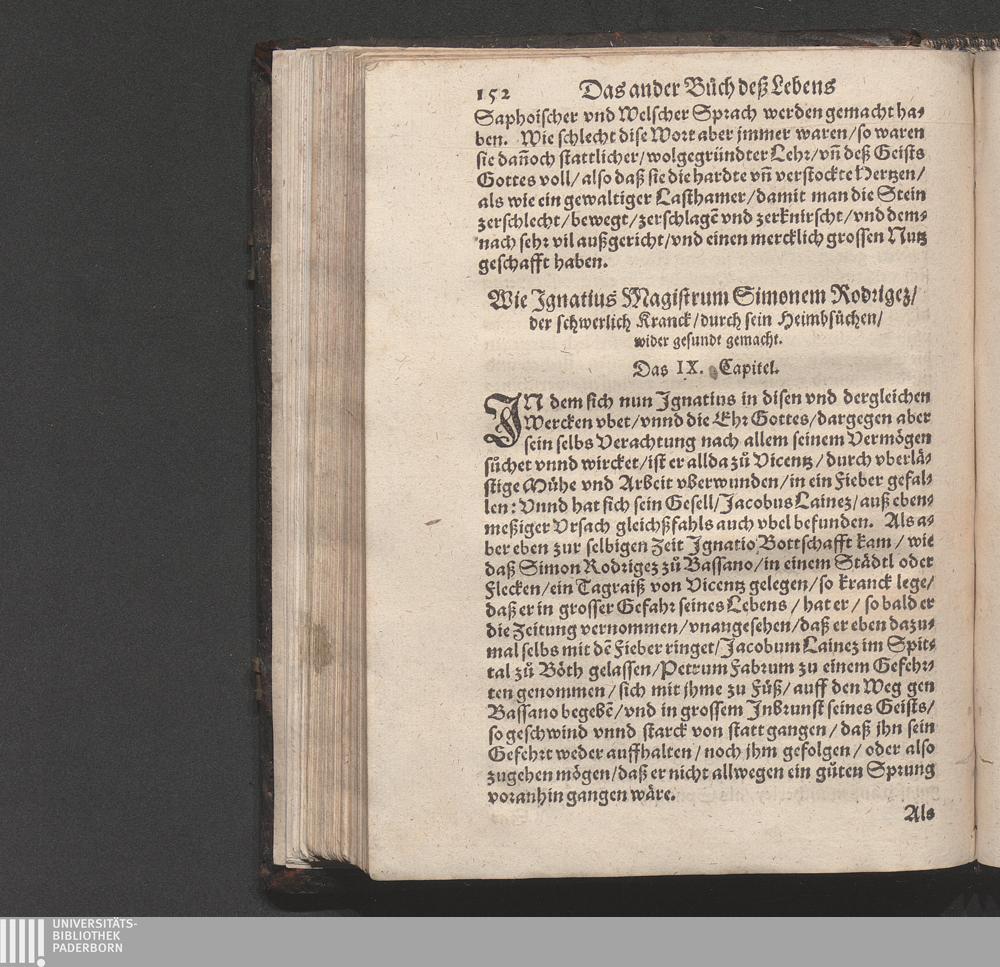 152 Das ander Bůch deß Lebens
Saphoischer vnd Welscher Sprach werden gemacht ha⸗
ben. Wie schlecht dise Wort aber jmmer waren/so waren
sie dañoch stattlicher/wolgegründter Lehr/vñ deß Geists
Gottes voll/also daß sie die hardte vñ verstockte Hertzen/
als wie ein gewaltiger Lasthamer/damit man die Stein
zerschlecht/bewegt/zerschlagē vnd zerknirscht/vnd dem⸗
nach sehr vil außgericht/vnd einen mercklich grossen Nutz
geschafft haben.
Wie Ignatius Magistrum Simonem Rodrigez/
der schwerlich Kranck/durch sein Heimbsůchen/
wider gesundt gemacht.
Das IX. Capitel.
IN dem sich nun Ignatius in disen vnd dergleichen
Wercken vbet/vnnd die Ehr Gottes/dargegen aber
sein selbs Verachtung nach allem seinem Vermögen
sůchet vnnd wircket/ist er allda zů Vicentz/durch vberlä⸗
stige Mühe vnd Arbeit vberwunden/in ein Fieber gefal⸗
len: Vnnd hat sich sein Gesell/Jacobus Lainez/auß eben⸗
meßiger Vrsach gleichßfahls auch vbel befunden. Als a⸗
ber eben zur selbigen Zeit Ignatio Bottschafft kam/wie
daß Simon Rodrigez zů Bassano/in einem Städtl oder
Flecken/ein Tagraiß von Vicentz gelegen/so kranck lege/
daß er in grosser Gefahr seines Lebens/hat er/so bald er
die Zeitung vernommen/vnangesehen/daß er eben dazu⸗
mal selbs mit dē Fieber ringet/Jacobum Lainez im Spit⸗
tal zů Böth gelassen/Petrum Fabrum zu einem Gefehr⸗
ten genommen/sich mit jhme zu Fůß/auff den Weg gen
Bassano begebē/vnd in grossem Inbrunst seines Geists/
so geschwind vnnd starck von statt gangen/daß jhn sein
Gefehrt weder auffhalten/noch jhm gefolgen/oder also
zugehen mögen/daß er nicht allwegen ein gůten Sprung
voranhin gangen wäre.
Als
UNIVERSITÄTS-
BIBLIOTHEK
PADERBORN